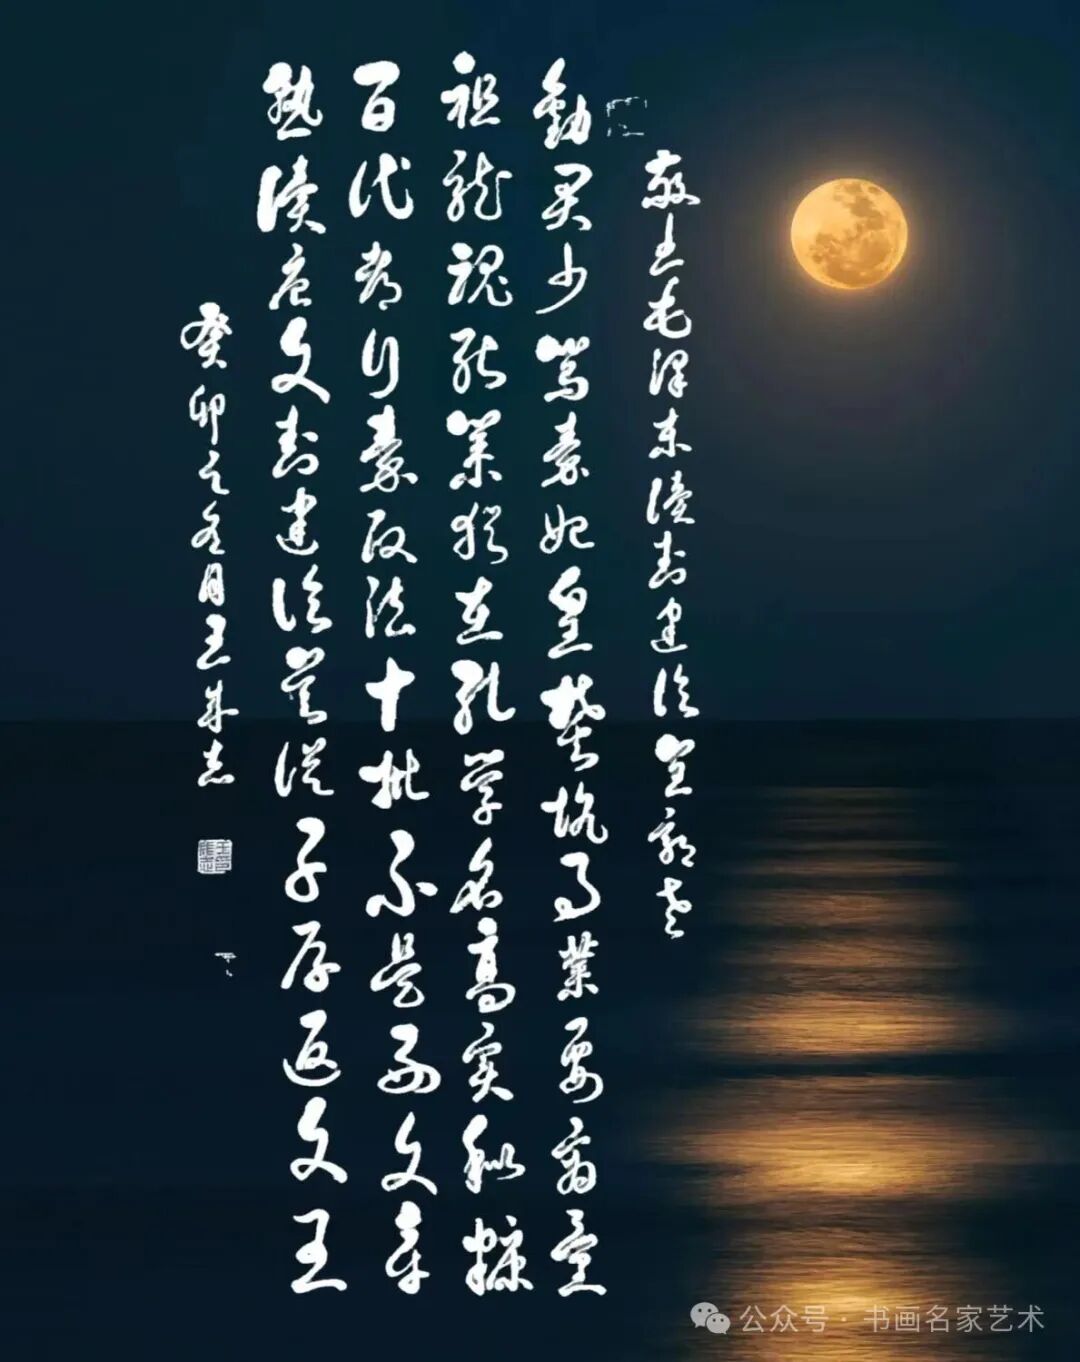 敬毛泽东读封建论呈郭老
勸君少骂秦始皇焚坑事業要商量
祖龍魂死秦猶在孔学名高实秕糠
百代都行秦政法十批不是好文章
熟读唐人封建论莫從子厚返文王
癸卯之冬月王成志
公众号·书画名家艺术